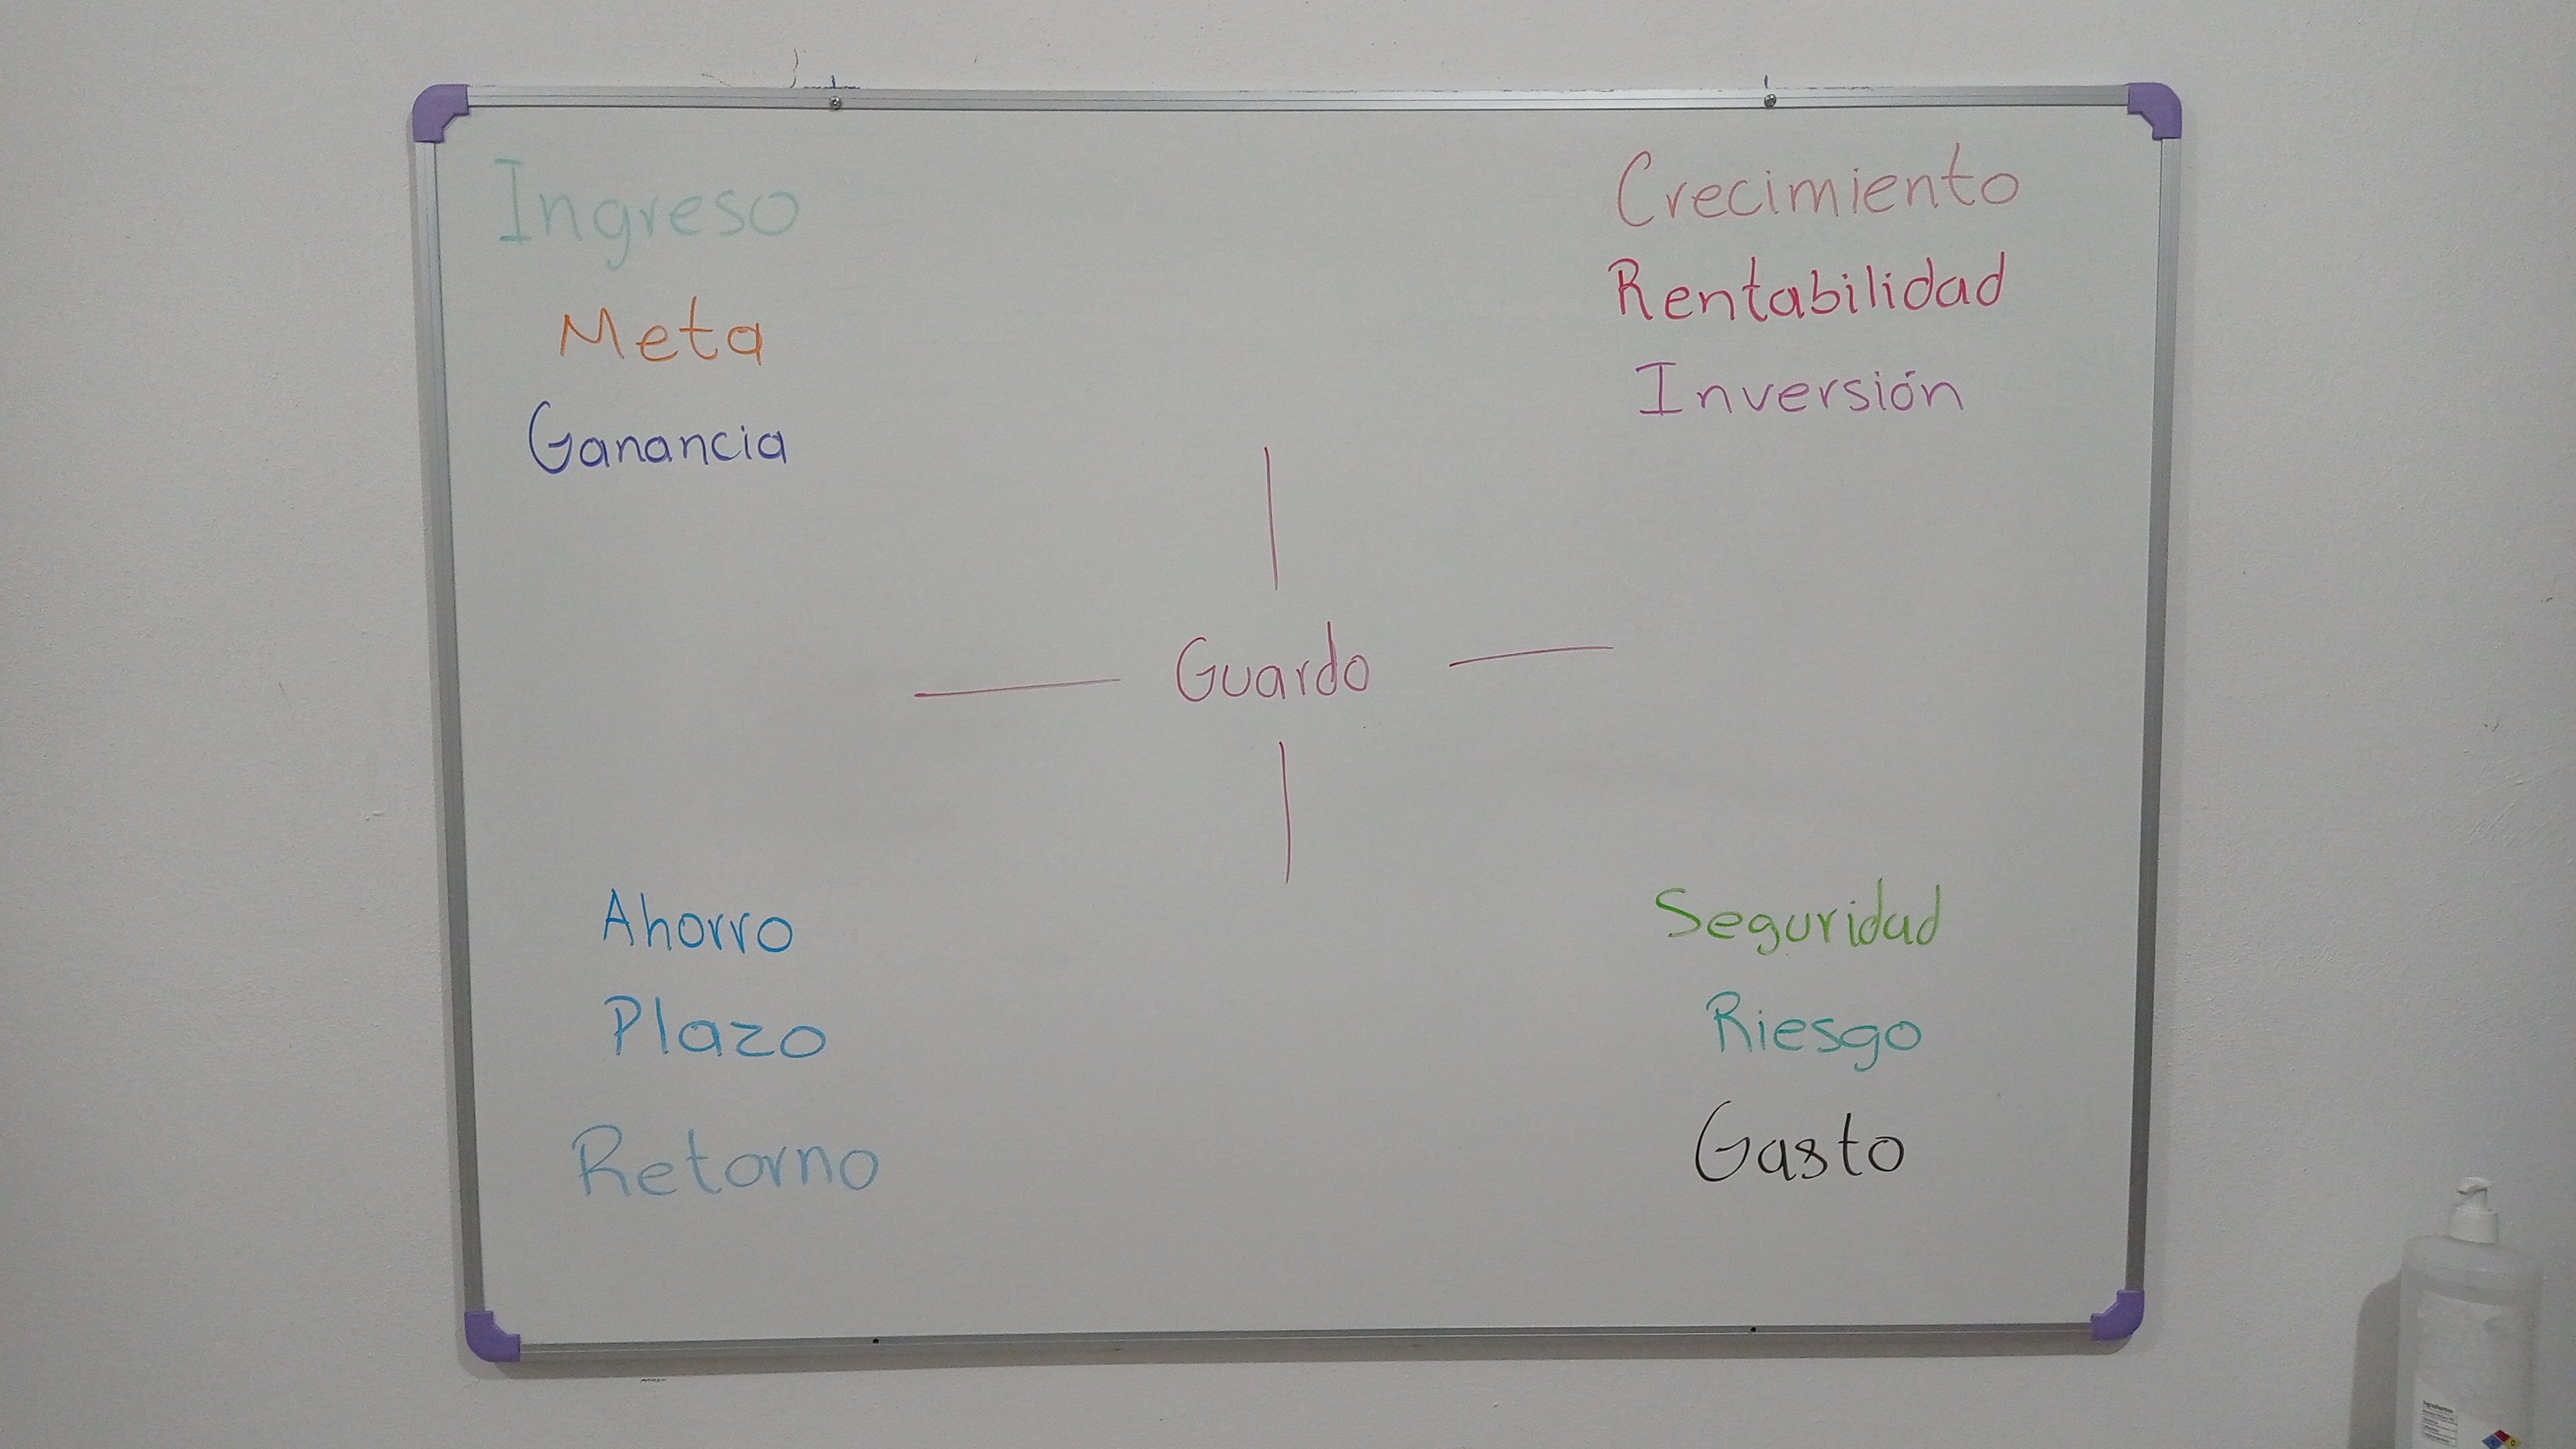 Ingreso
Meta
Ganancia
Crecimiento
Rentabilidad
Inversión
Guardo
Ahorro
Plazo
Retorno
Seguridad
Riesgo
Gasto